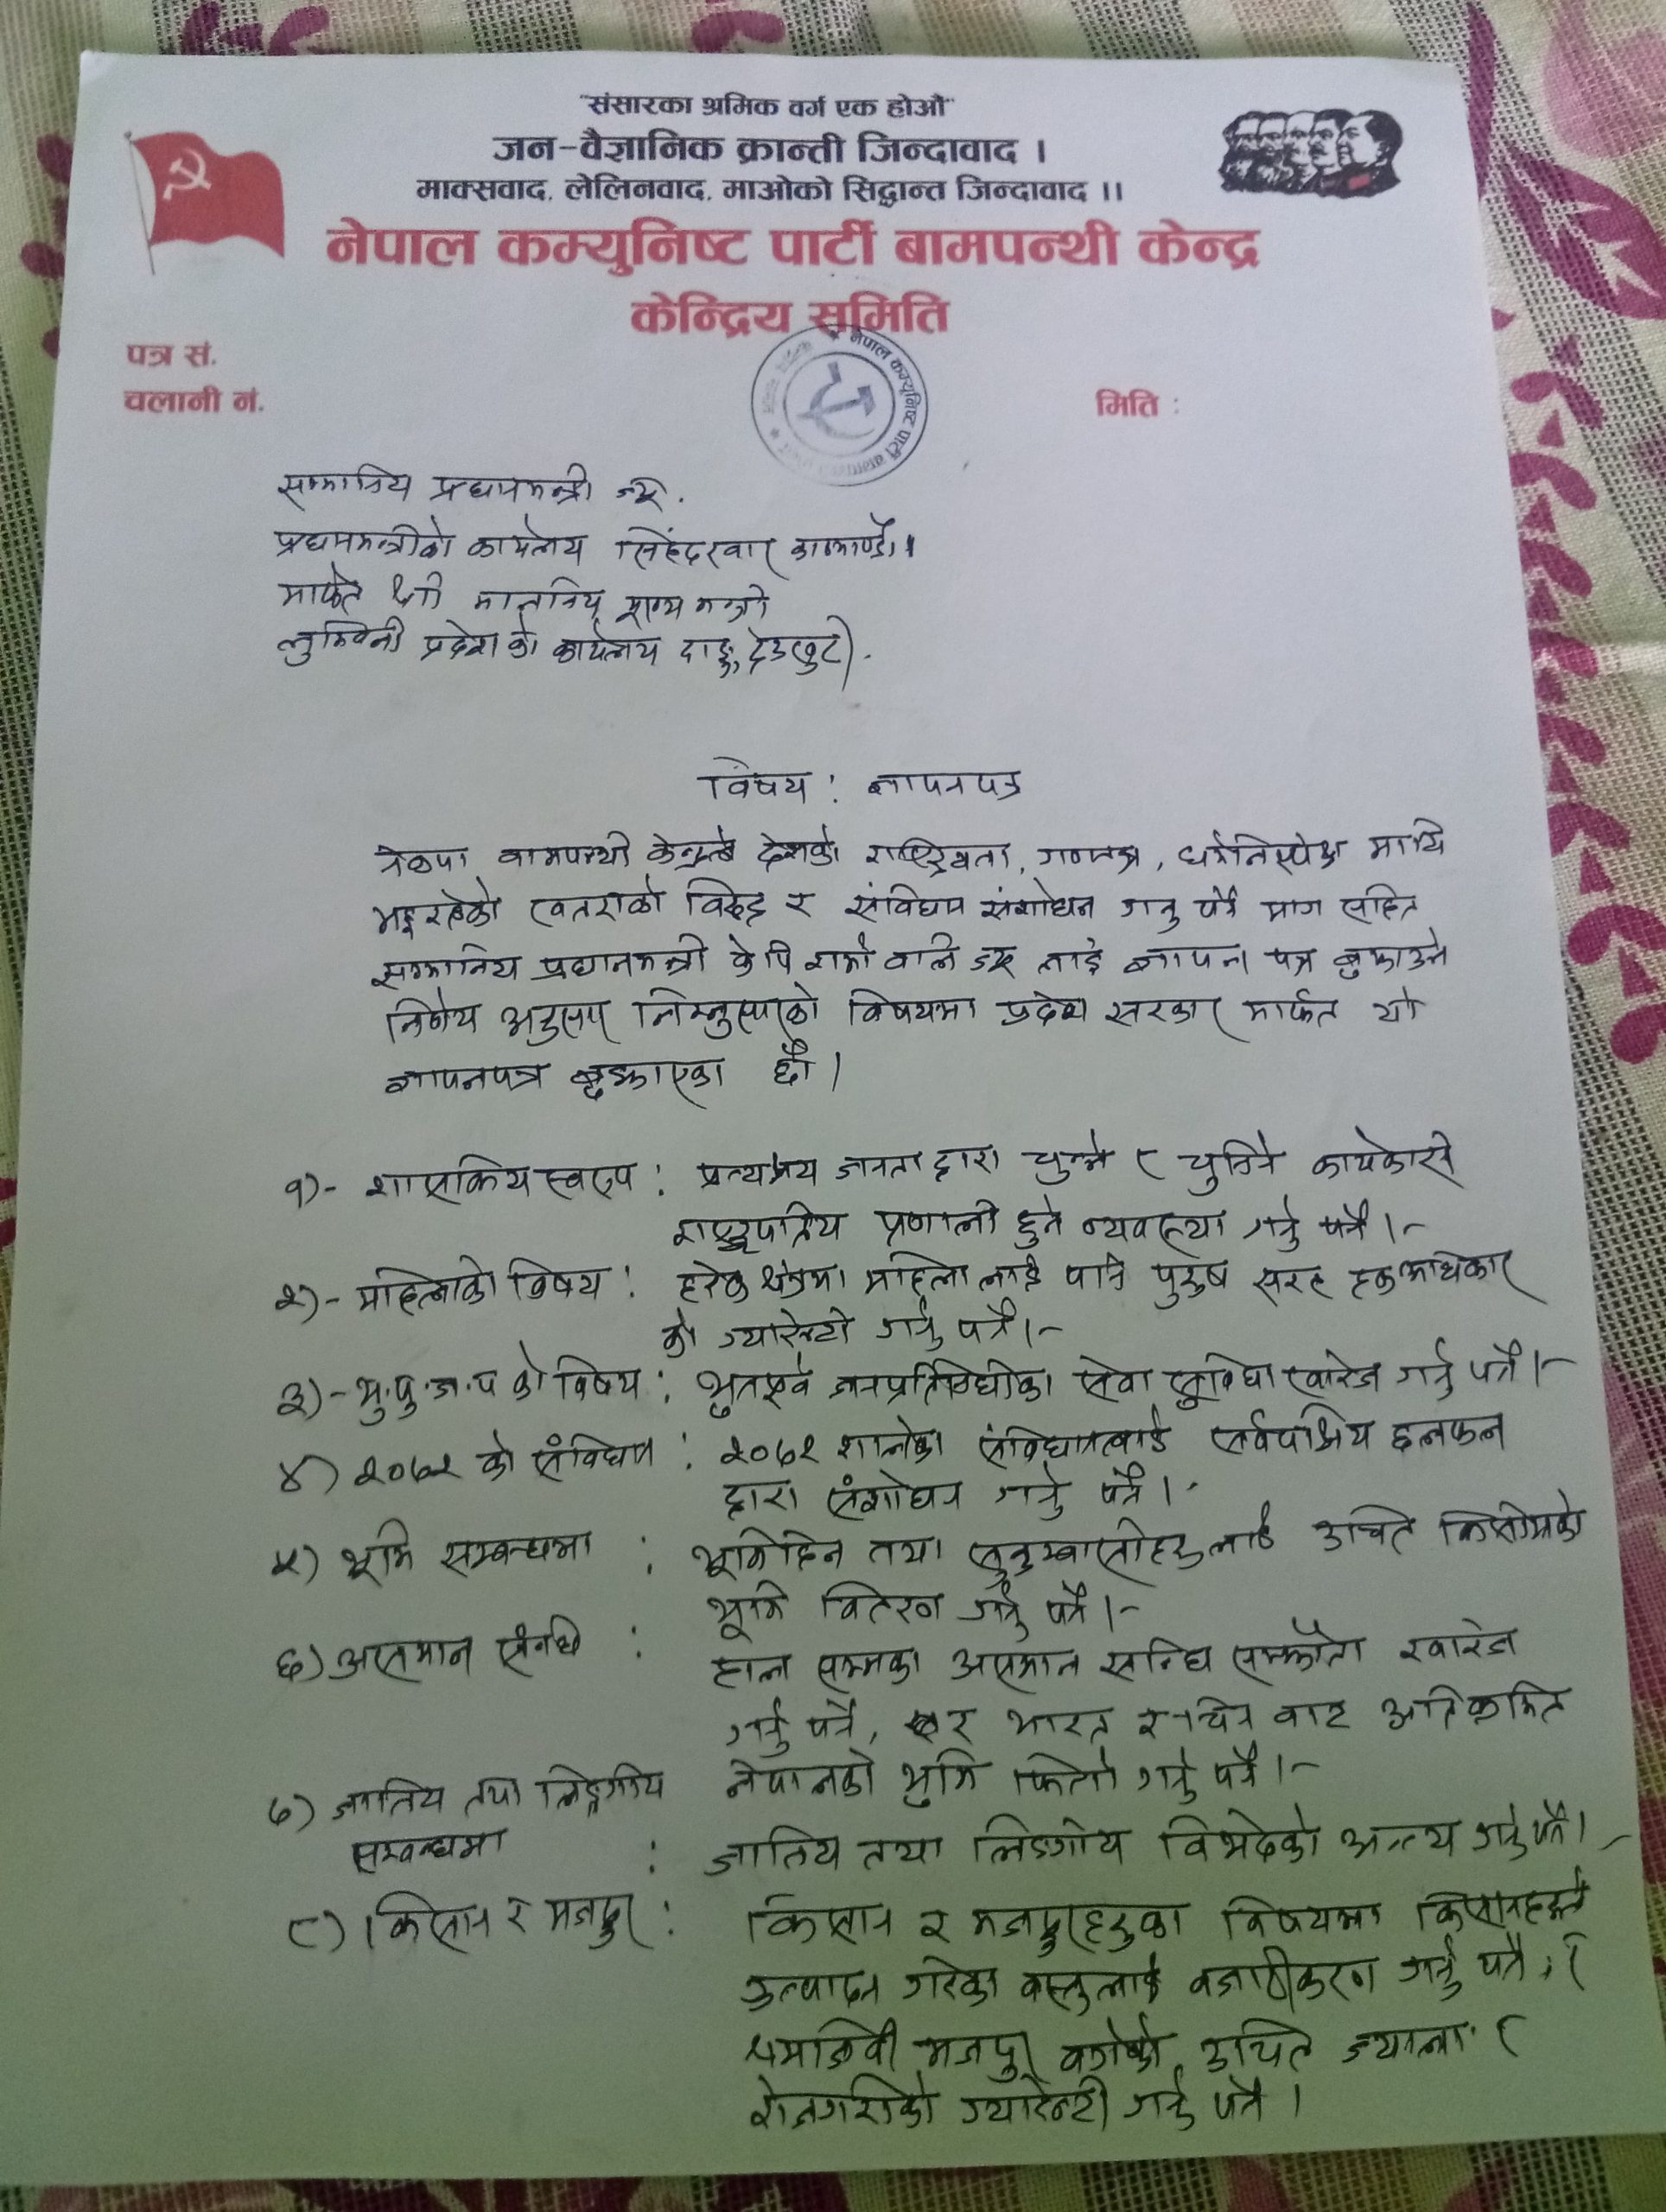 "संसारका श्रमिक वर्ग एक होऔ"
जन-वैज्ञानिक क्रान्ती जिन्दावाद ।
माक्सवाद, लेलिनवाद, माओको सिद्धान्त जिन्दावाद ।।
नेपाल कम्युनिष्ट पार्टी बामपन्थी केन्द्र
केन्द्रिय समिति
नेपाल कम्युनिष्ट पार्टी
पत्र सं.
चलानी नं.
मिति :
सम्मानिय प्रधानमन्त्री ज्यू.
प्रधानमन्त्रीको कार्यलय सिंहदरवार काठमाण्डौ।
मार्फत श्री माननिय मुख्य मन्त्री
लुम्विनी प्रदेशको कार्यलय दाङ, देउखुरी.
विषय : ज्ञापनपत्र
नेकपा वामपन्थी केन्द्रले देशको राष्ट्रियता, गणतन्त्र, धर्मनिरपेक्ष माथि
भइरहेको खतराको विरुद्द र संविधान संशोधन गर्नु पर्ने माग सहित
सम्मानिय प्रधानमन्त्री के पि शर्मा वलि ज्यू लाई ज्ञापन पत्र बुझाउने
निर्णय अनुसार निम्नुसारको विषयमा प्रदेश सरकार मार्फत यो
ज्ञापनपत्र बुझाएका छौं ।
१)- शासकियस्वरुप : प्रत्यक्षय जनता द्वारा चुन्ने र चुनिने कार्यकारी
राष्ट्रपतिय प्रणाली हुने व्यवस्था गर्नु पर्ने ।-
२)- महिलाको विषय : हरेक क्षेत्रमा महिला लाई पनि पुरुष सरह हकअधिकार
को ग्यारेन्टी गर्नु पर्ने।-
३)- भु.पु.ज.प को विषय : भुतपूर्व जनप्रतिनिधीका सेवा सुविधा खारेज गर्नु पर्ने।-
४) २०७२ को संविधान : २०७२ शालका संविधानलाई सर्वपक्षिय छलफल
द्वारा संशोधन गर्नु पर्ने ।-
५) भूमि सम्बन्धमा : भूमिहिन तथा सुकुम्वासीहरुलाई उचित किसीमको
भूमि वितरण गर्नु पर्ने ।-
६) असमान संन्धि : हाल सम्मका असमान सन्धि सम्झौता खारेज
गर्नु पर्ने, र भारत र चिन वाट अतिक्रमित
नेपालको भुमि फिर्ता गर्नु पर्ने ।-
७) जातिय तथा लिङ्गीय
सम्वन्धमा : जातिय तथा लिङगीय विभेदको अन्त्य गर्नु पर्ने।-
८) किसान र मजदुर : किसान र मजदुरहरुका विषयमा किसानहरुले
उत्पादन गरेका वस्तुलाई वजारीकरण गर्नु पर्ने, र
श्रमजिवी मजदुर वर्गको उचित ज्याला र
रोजगारीको ग्यारेन्टी गर्नु पर्ने ।